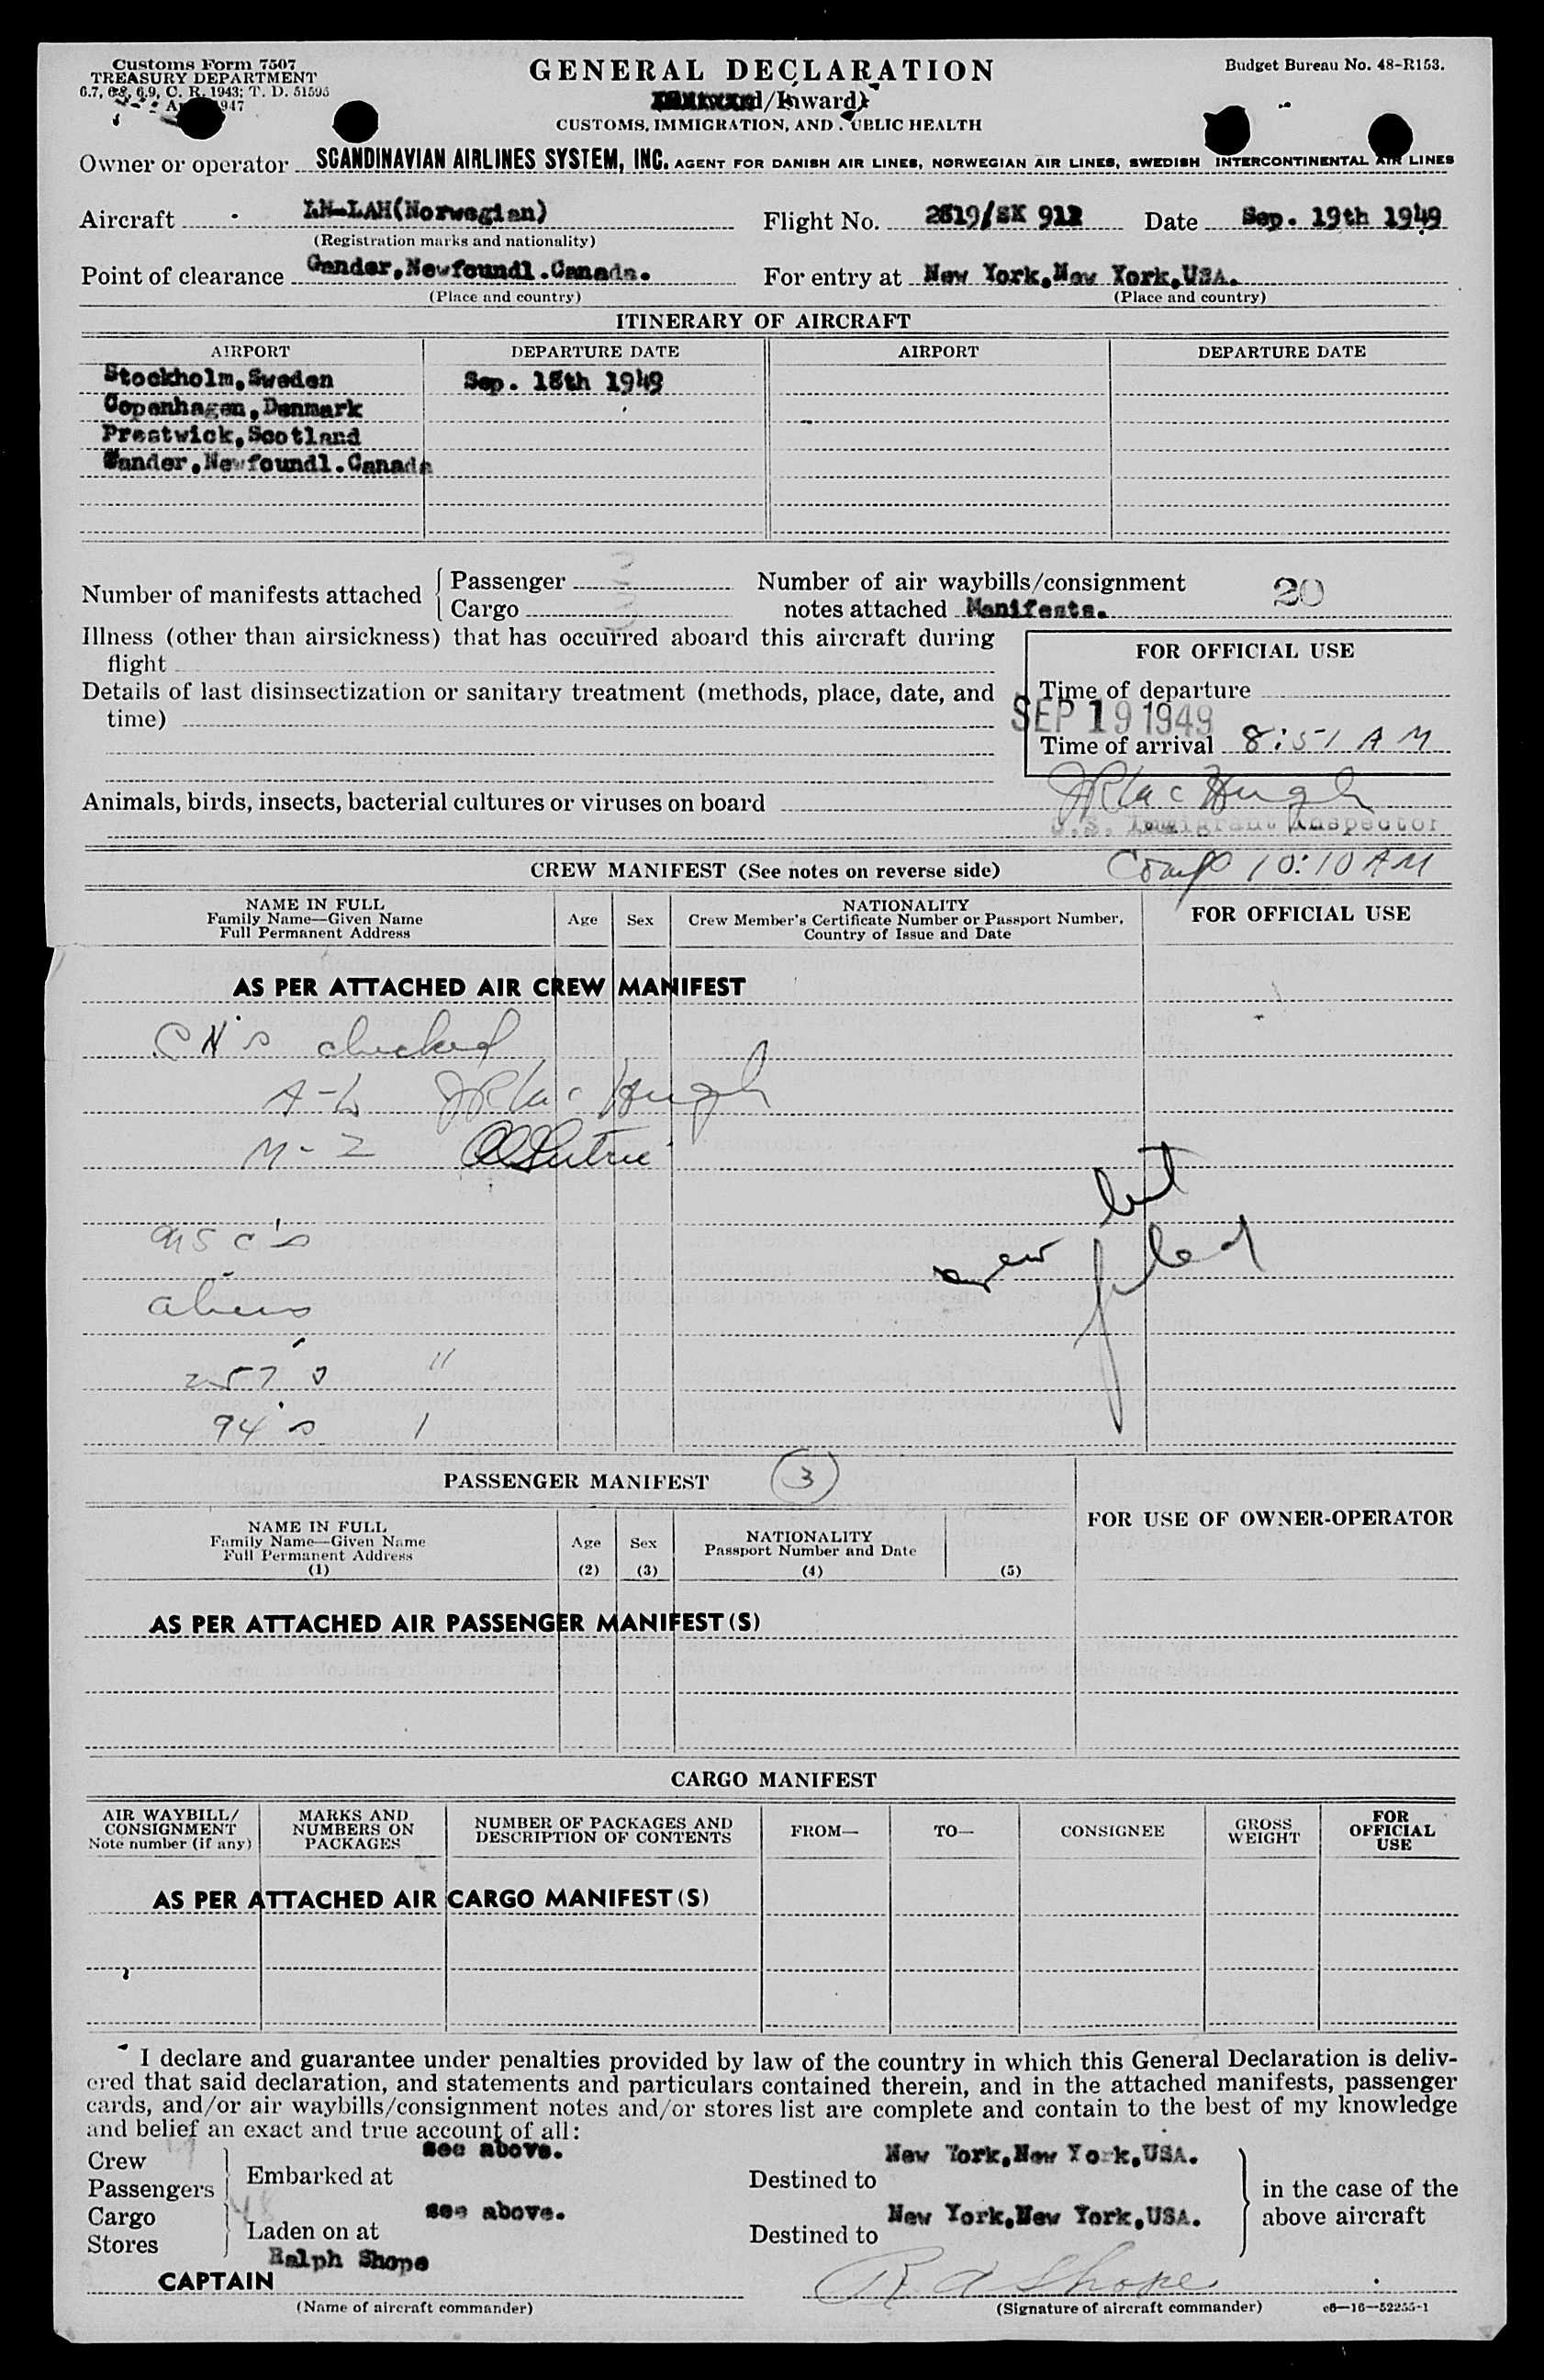 Customs Form 7507
TREASURY DEPARTMENT
6.7, 6.8, 6.9, C. R. 1943; T. D. 51595
1947
GENERAL DECLARATION
/Inward)
CUSTOMS, IMMIGRATION, AND PUBLIC HEALTH
Budget Bureau No. 48-R153.
Owner or operator SCANDINAVIAN AIRLINES SYSTEM, INC. AGENT FOR DANISH AIR LINES, NORWEGIAN AIR LINES, SWEDISH INTERCONTINENTAL AIR LINES
Aircraft LN-LAH(Norwegian) Flight No. 2519/SK 912 Date Sep. 19th 1949
(Registration marks and nationality)
Point of clearance Gander,Newfoundl.Canada. For entry at New York,New York,USA.
(Place and country) (Place and country)
ITINERARY OF AIRCRAFT
AIRPORT DEPARTURE DATE AIRPORT DEPARTURE DATE
Stockholm,Sweden Sep. 18th 1949
Copenhagen,Denmark
Prestwick,Scotland
Gander,Newfoundl.Canada
Number of manifests attached Passenger 3
Cargo 3
Number of air waybills/consignment
notes attached Manifests. 20
Illness (other than airsickness) that has occurred aboard this aircraft during
flight
Details of last disinsectization or sanitary treatment (methods, place, date, and
time)
FOR OFFICIAL USE
Time of departure
SEP 19 1949
Time of arrival 8:51 AM
Animals, birds, insects, bacterial cultures or viruses on board
U.S. Immigrant Inspector
Comp 10:10 AM
CREW MANIFEST (See notes on reverse side)
NAME IN FULL
Family Name—Given Name
Full Permanent Address
Age
Sex
NATIONALITY
Crew Member's Certificate Number or Passport Number,
Country of Issue and Date
FOR OFFICIAL USE
AS PER ATTACHED AIR CREW MANIFEST
checked
A-L
M-Z
USC's
aliens
257's 11
94's 1
crew list
filed
PASSENGER MANIFEST 3
NAME IN FULL
Family Name—Given Name
Full Permanent Address
(1)
Age
(2)
Sex
(3)
NATIONALITY
Passport Number and Date
(4)
(5)
FOR USE OF OWNER-OPERATOR
AS PER ATTACHED AIR PASSENGER MANIFEST(S)
CARGO MANIFEST
AIR WAYBILL/
CONSIGNMENT
Note number (if any)
MARKS AND
NUMBERS ON
PACKAGES
NUMBER OF PACKAGES AND
DESCRIPTION OF CONTENTS
FROM—
TO—
CONSIGNEE
GROSS
WEIGHT
FOR
OFFICIAL
USE
AS PER ATTACHED AIR CARGO MANIFEST(S)
I declare and guarantee under penalties provided by law of the country in which this General Declaration is deliv-
ered that said declaration, and statements and particulars contained therein, and in the attached manifests, passenger
cards, and/or air waybills/consignment notes and/or stores list are complete and contain to the best of my knowledge
and belief an exact and true account of all:
Crew
Passengers
Embarked at see above. Destined to New York,New York,USA.
in the case of the
above aircraft
Cargo
Stores
48
Laden on at see above. Destined to New York,New York,USA.
CAPTAIN Ralph Shope R A Shope
(Name of aircraft commander) (Signature of aircraft commander) c6—16—52255-1